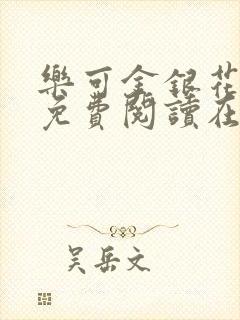 樂可金銀花
免費閱讀在
吴岳文